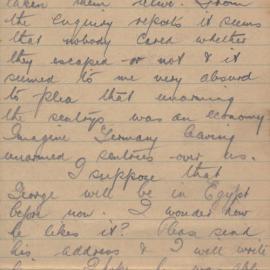 taken them alive. From
the Enquiry reports it seems
that nobody cared whether
they escaped or not & it
seemed to me very absurd
to plea that unarming
the sentrys was an economy
Imagine Germany leaving
unarmed sentries over us.
I suppose that
George will be in Egypt
before now. I wonder how
he likes it? Please send
his address & I will write
he was able